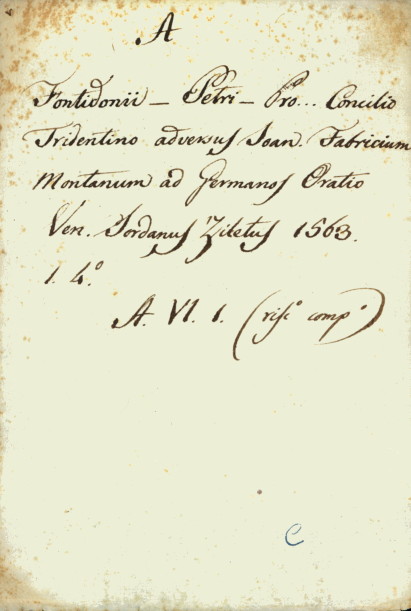 A
Fontidonii – Petri – Pro... Concilio
Tridentino adversus Joan. Fabricium
Montanum ad Germanos Oratio
Ven. Jordanus Ziletus 1563.
1. 4.º
A. VI. 1. (risº compº)
C